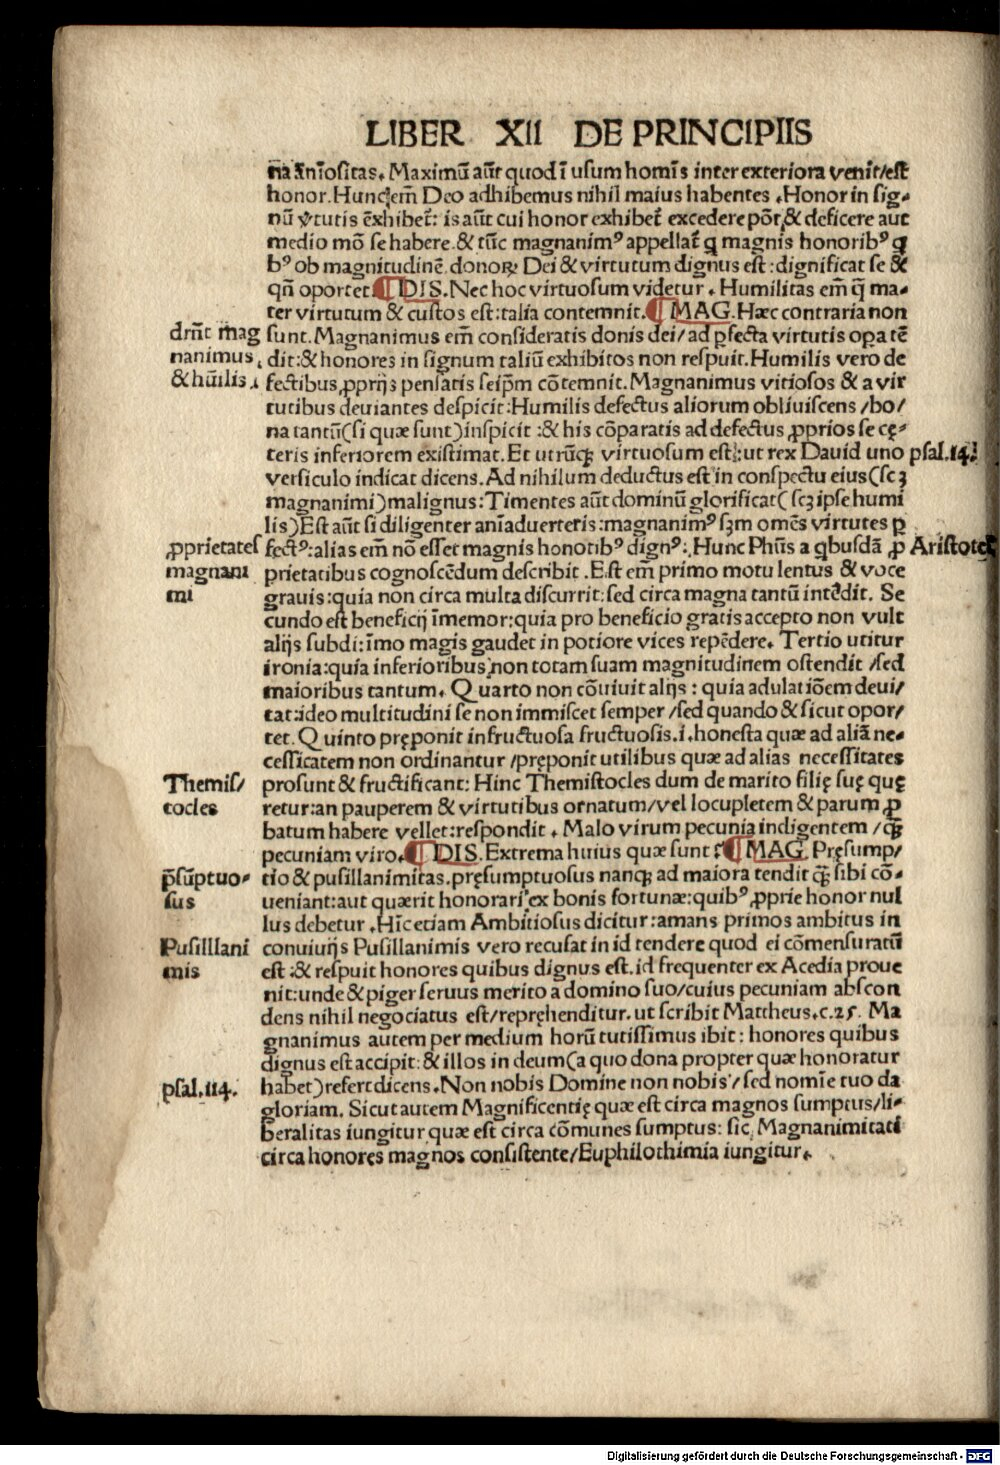 LIBER XII DE PRINCIPIIS
na anīositas. Maximū aūt quod ī usum homīs inter exteriora venit/est
honor. Hunc em̄ Deo adhibemus nihil maius habentes. Honor in sig-
nū v̄tutis ēxhibet̄: is aūt cui honor exhibet̄ excedere pōt, & deficere aut
medio mō se habere. & tūc magnanimꝰ appellat̄ q magnis honoribꝰ q
bꝰ ob magnitudinē donoꝝ Dei & virtutum dignus est: dignificat se &
qn̄ oportet. ¶ DIS. Nec hoc virtuosum videtur. Humilitas em̄ q̄ ma-
ter virtutum & custos est: talia contemnit. ¶ MAG. Hæc contraria non
drn̄t mag
nanimus
& hūilis.
sunt. Magnanimus em̄ consideratis donis dei/ ad ꝑfecta virtutis opa tē
dit: & honores in signum taliū exhibitos non respuit. Humilis vero de
fectibus ꝓprijs pensatis seip̄m cōtemnit. Magnanimus vitiosos & a vir
tutibus deuiantes despicit: Humilis defectus aliorum obliuiscens /bo/
na tantū (si quæ sunt) inspicit: & his cōparatis ad defectus ꝓprios se cę-
teris inferiorem existimat. Et utrūqꝫ virtuosum est: ut rex Dauid uno
psal. 14.
versiculo indicat dicens. Ad nihilum deductus est in conspectu eius (scꝫ
magnanimi) malignus: Timentes aūt dominū glorificat (scꝫ ipse humi
lis) Est aūt si diligenter anīaduerteris: magnanimꝰ sꝫm omēs virtutes ꝑ
ꝓprietates
magnani
mi
fectꝰ: alias em̄ nō esset magnis honoribꝰ dignꝰ. Hunc Phūs a qbusdā ꝓ
Aristotel
prietatibus cognoscēdum describit. Est em̄ primo motu lentus & voce
grauis: quia non circa multa discurrit: sed circa magna tantū intēdit. Se
cundo est beneficij īmemor: quia pro beneficio gratis accepto non vult
alijs subdi: īmo magis gaudet in potiore vices repēdere. Tertio utitur
ironia: quia inferioribus non totam suam magnitudinem ostendit /sed
maioribus tantum. Quarto non cōuiuit alijs: quia adulatiōem deui/
tat: ideo multitudini se non immiscet semper /sed quando & sicut opor/
tet. Quinto pręponit infructuosa fructuosis. i. honesta quæ ad aliā ne-
cessitatem non ordinantur /pręponit utilibus quæ ad alias necessitates
Themis/
tocles
prosunt & fructificant: Hinc Themistocles dum de marito filię suę quę
retur: an pauperem & virtutibus ornatum/vel locupletem & parum ꝓ
batum habere vellet: respondit. Malo virum pecunia indigentem /qꝫ
pecuniam viro. ¶ DIS. Extrema huius quæ sunt? ¶ MAG. Pręsump/
p̄sūptuo-
sus
tio & pusillanimitas. pręsumptuosus nanqꝫ ad maiora tendit qꝫ sibi cō-
ueniant: aut quærit honorari ex bonis fortunæ: quibꝰ ꝓprie honor nul
lus debetur. Hīc etiam Ambitiosus dicitur: amans primos ambitus in
Pusilllani
mis
conuiuijs Pusillanimis vero recusat in id tendere quod ei cōmensuratū
est: & respuit honores quibus dignus est. id frequenter ex Acedia proue
nit: unde & piger seruus merito a domino suo/cuius pecuniam abscon
dens nihil negociatus est/repręhenditur. ut scribit Mattheus. c. 25. Ma
gnanimus autem per medium horū tutissimus ibit: honores quibus
dignus est accipit: & illos in deum (a quo dona propter quæ honoratur
psal. 114.
habet) refert dicens. Non nobis Domine non nobis / sed nomīe tuo da
gloriam. Sicut autem Magnificentię quæ est circa magnos sumptus/li-
beralitas iungitur quæ est circa cōmunes sumptus: sic Magnanimitati
circa honores magnos consistente/Euphilothimia iungitur.
Digitalisierung gefördert durch die Deutsche Forschungsgemeinschaft - DFG